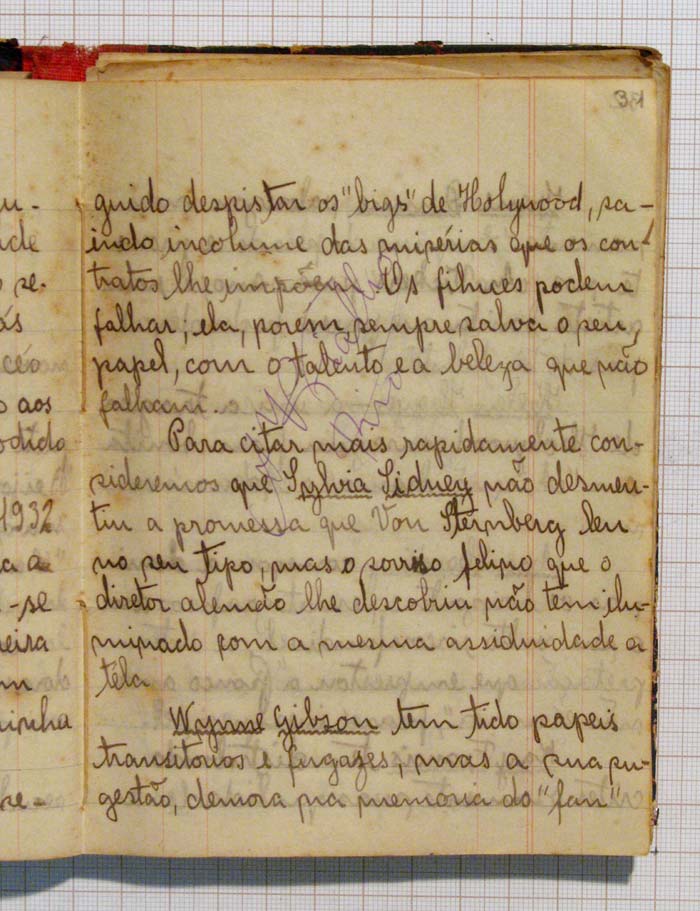 31
guido despistar os "bigs" de Holywood, sa-
indo incolume das misérias que os con-
tratos lhe impõem. Os filmes podem
falhar; ela, porém, sempre salva o seu
papel, com o talento e a beleza que não
falham.
Para citar mais rapidamente con-
sideremos que Sylvia Sidney não desmen-
tiu a promessa que Von Sternberg leu
no seu tipo, mas o sorriso felino que o
diretor alemão lhe descobriu não tem ilu-
minado com a mesma assiduidade a
téla
Wynne Gibson tem tido papeis
transitorios e fugazes, mas a sua su-
gestão, demora na memoria do "fan"
u-
ade
se-
ás
céo
o aos
odido
1932
a a
-se
eira
m
inha
se-